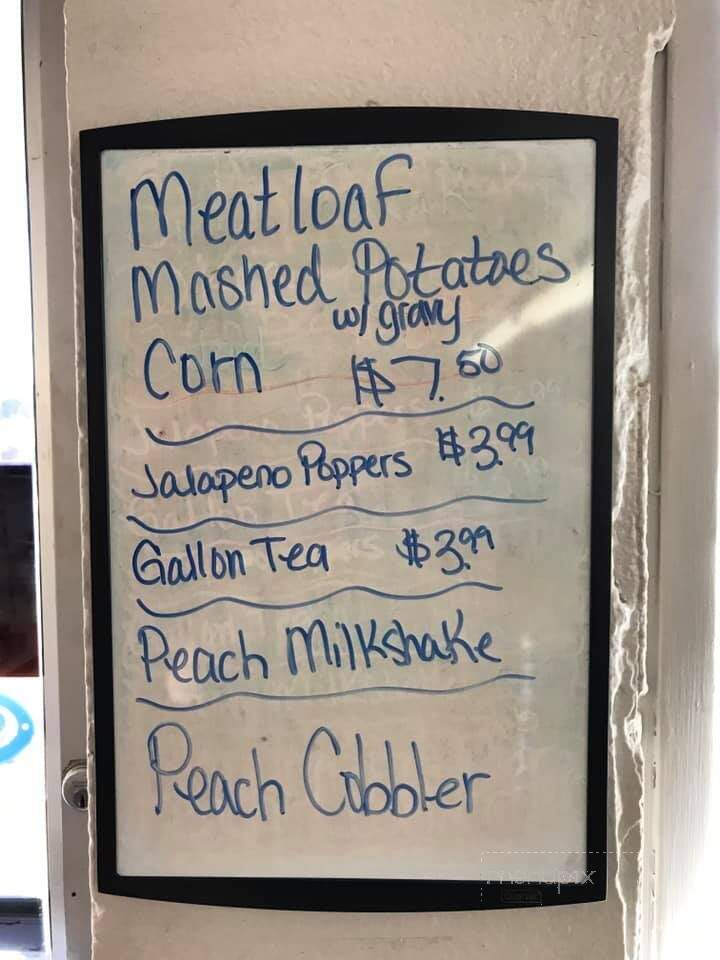 Meatloaf
Mashed Potatoes
w/ gravy
Corn $7.50
Jalapeno Poppers $3.99
Gallon Tea $3.99
Peach Milkshake
Peach Cobbler
menupix